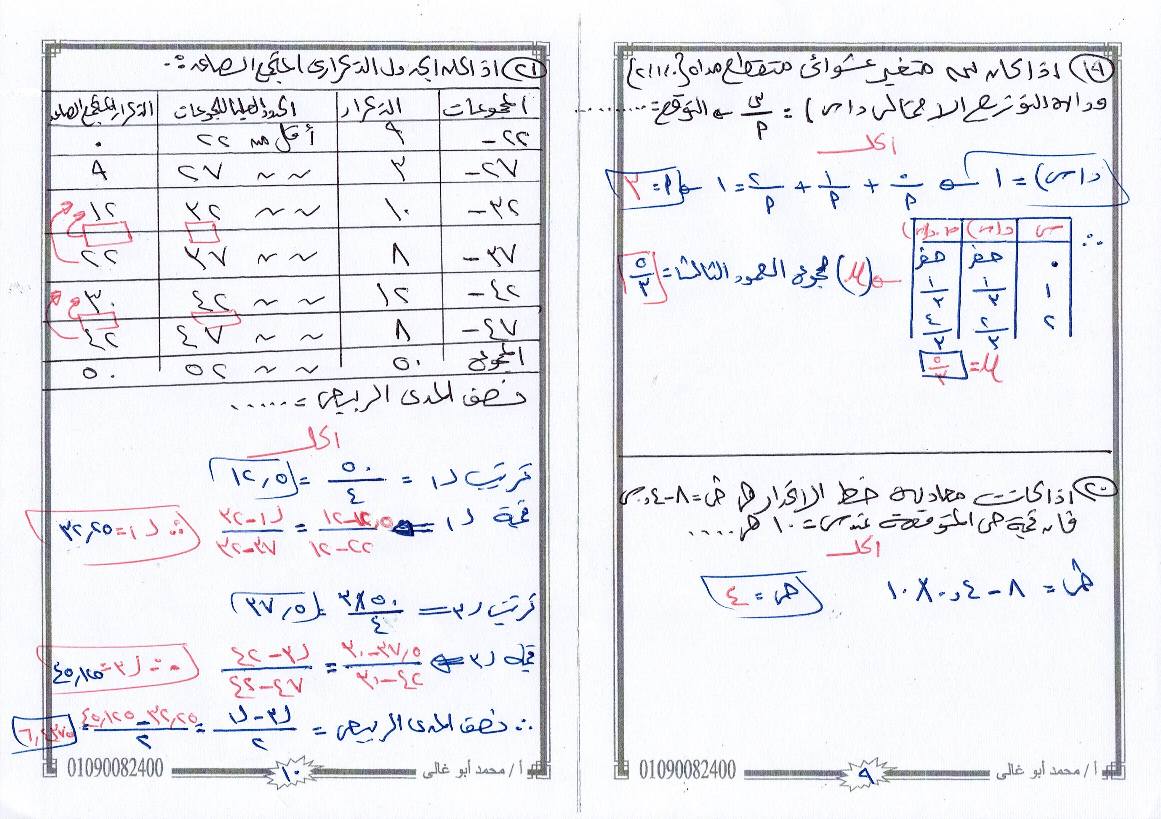 (١٩) اذا كان س متغير عشوائى متقطع مداه {٠،١،٢}
ودالة التوزيع الاحتمالى د(س) = س/م ← التوقع = ..........
الحل
د(س) = ١ ← ٠/م + ١/م + ٢/م = ١ ← م = ٣
∴ س | د(س) | س.د(س)
٠ | صفر | صفر
١ | ١/٣ | ١/٣
٢ | ٢/٣ | ٤/٣
μ = ٥/٣
← (μ) مجموع العمود الثالث = ٥/٣
(٢٠) اذا كانت معادلة خط الانحدار هى صَ = ٨ - ٠,٤ س
فان قيمة ص المتوقعة عند س = ١٠ هى ....
الحل
صَ = ٨ - ٠,٤ × ١٠
ص = ٤
٩
أ / محمد أبو غالى
01090082400
(٢١) اذا كان الجدول التكرارى المتجمع الصاعد :-
المجموعات | التكرار | الحدود العليا للمجموعات | التكرار المتجمع الصاعد
٢٢- | ٩ | أقل من ٢٢ | ٠
٢٧- | ٣ | ~ ~ ٢٧ | ٩
٣٢- | ١٠ | ~ ~ ٣٢ | ١٢
٣٧- | ٨ | ~ ~ ٣٧ | ٢٢
٤٢- | ١٢ | ~ ~ ٤٢ | ٣٠
٤٧- | ٨ | ~ ~ ٤٧ | ٤٢
المجموع | ٥٠ | ~ ~ ٥٢ | ٥٠
نصف المدى الربيعى = .....
الحل
ترتيب ر١ = ٥٠/٤ = ١٢,٥
قيمة ر١ ⇐ (١٢-١٢,٥)/(١٢-٢٢) = (٣٢-ر١)/(٣٢-٣٧) ∴ ر١ = ٣٢,٢٥
ترتيب ر٣ = ٣×٥٠/٤ = ٣٧,٥
قيمة ر٣ ⇐ (٣٠-٣٧,٥)/(٣٠-٤٢) = (ر٣-٤٢)/(٤٢-٤٧) ∴ ر٣ = ٤٥,١٢٥
∴ نصف المدى الربيعى = (ر٣-ر١)/٢ = (٤٥,١٢٥-٣٢,٢٥)/٢ = ٦,٤٣٧٥
١٠
أ / محمد أبو غالى
01090082400